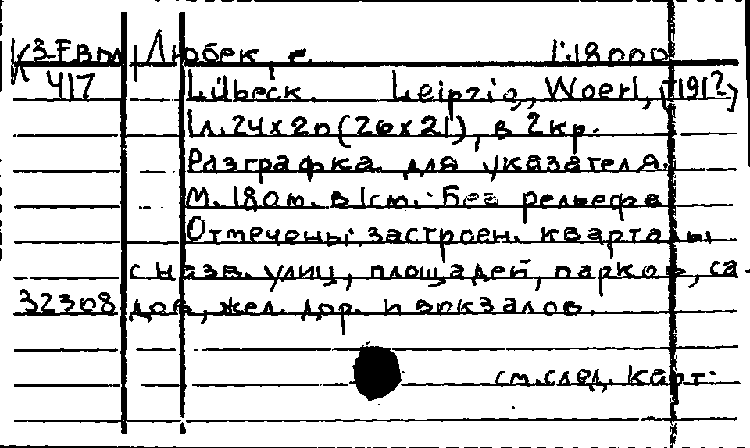 К3-Гвпл Любек, г. 1:18000
417 Lübeck. Leipzig, Woerl, [191?]
1л. 24х20 (26х21), в 2кр.
Разграфка для указателя.
М. 180м. в 1см. Без рельефа
Отмечены: застроен. кварталы
с назв. улиц, площадей, парков, са-
32308 дов, жел. дор. и вокзалов.
см. след. карт.